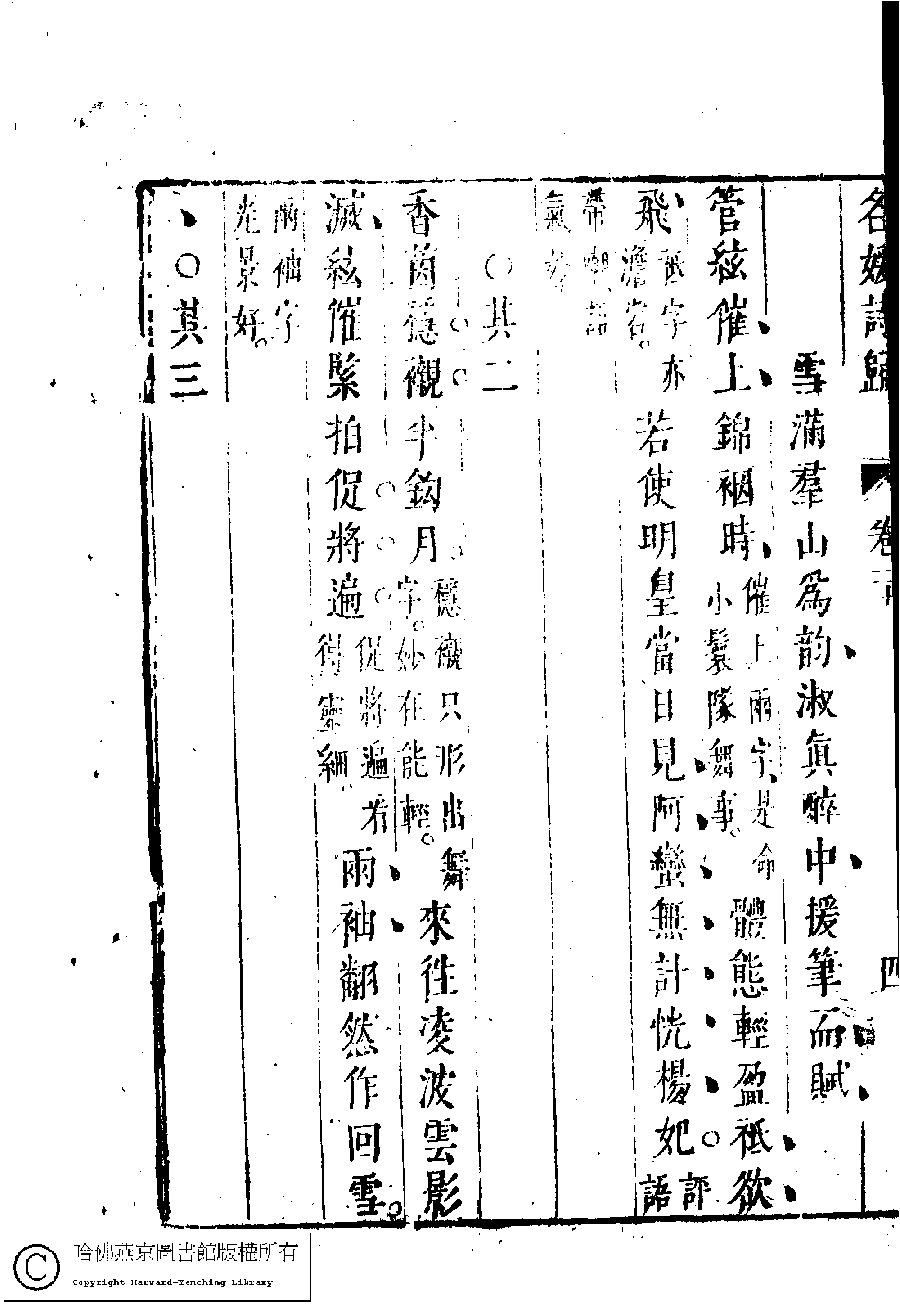 名媛詩歸 卷 四
雪滿羣山爲韵淑眞醉中援筆而賦
管絃催上錦裀時 催上兩字是命小鬟隊舞事。 體態輕盈祗欲
飛 祗字亦澹宕。 若使明皇當日見阿蠻無計恍楊妃 評語
帶嘲語氣妙
○其二
香茵穩襯半鈎月 穩襯只形出舞字。妙在能輕。 來往凌波雲影
滅絃催緊拍促將遍 促將遍看得靈細。 兩袖翻然作回雪
兩袖字光景好。
○其三
哈佛燕京圖書館版權所有
Copyright Harvard-Yenching Library